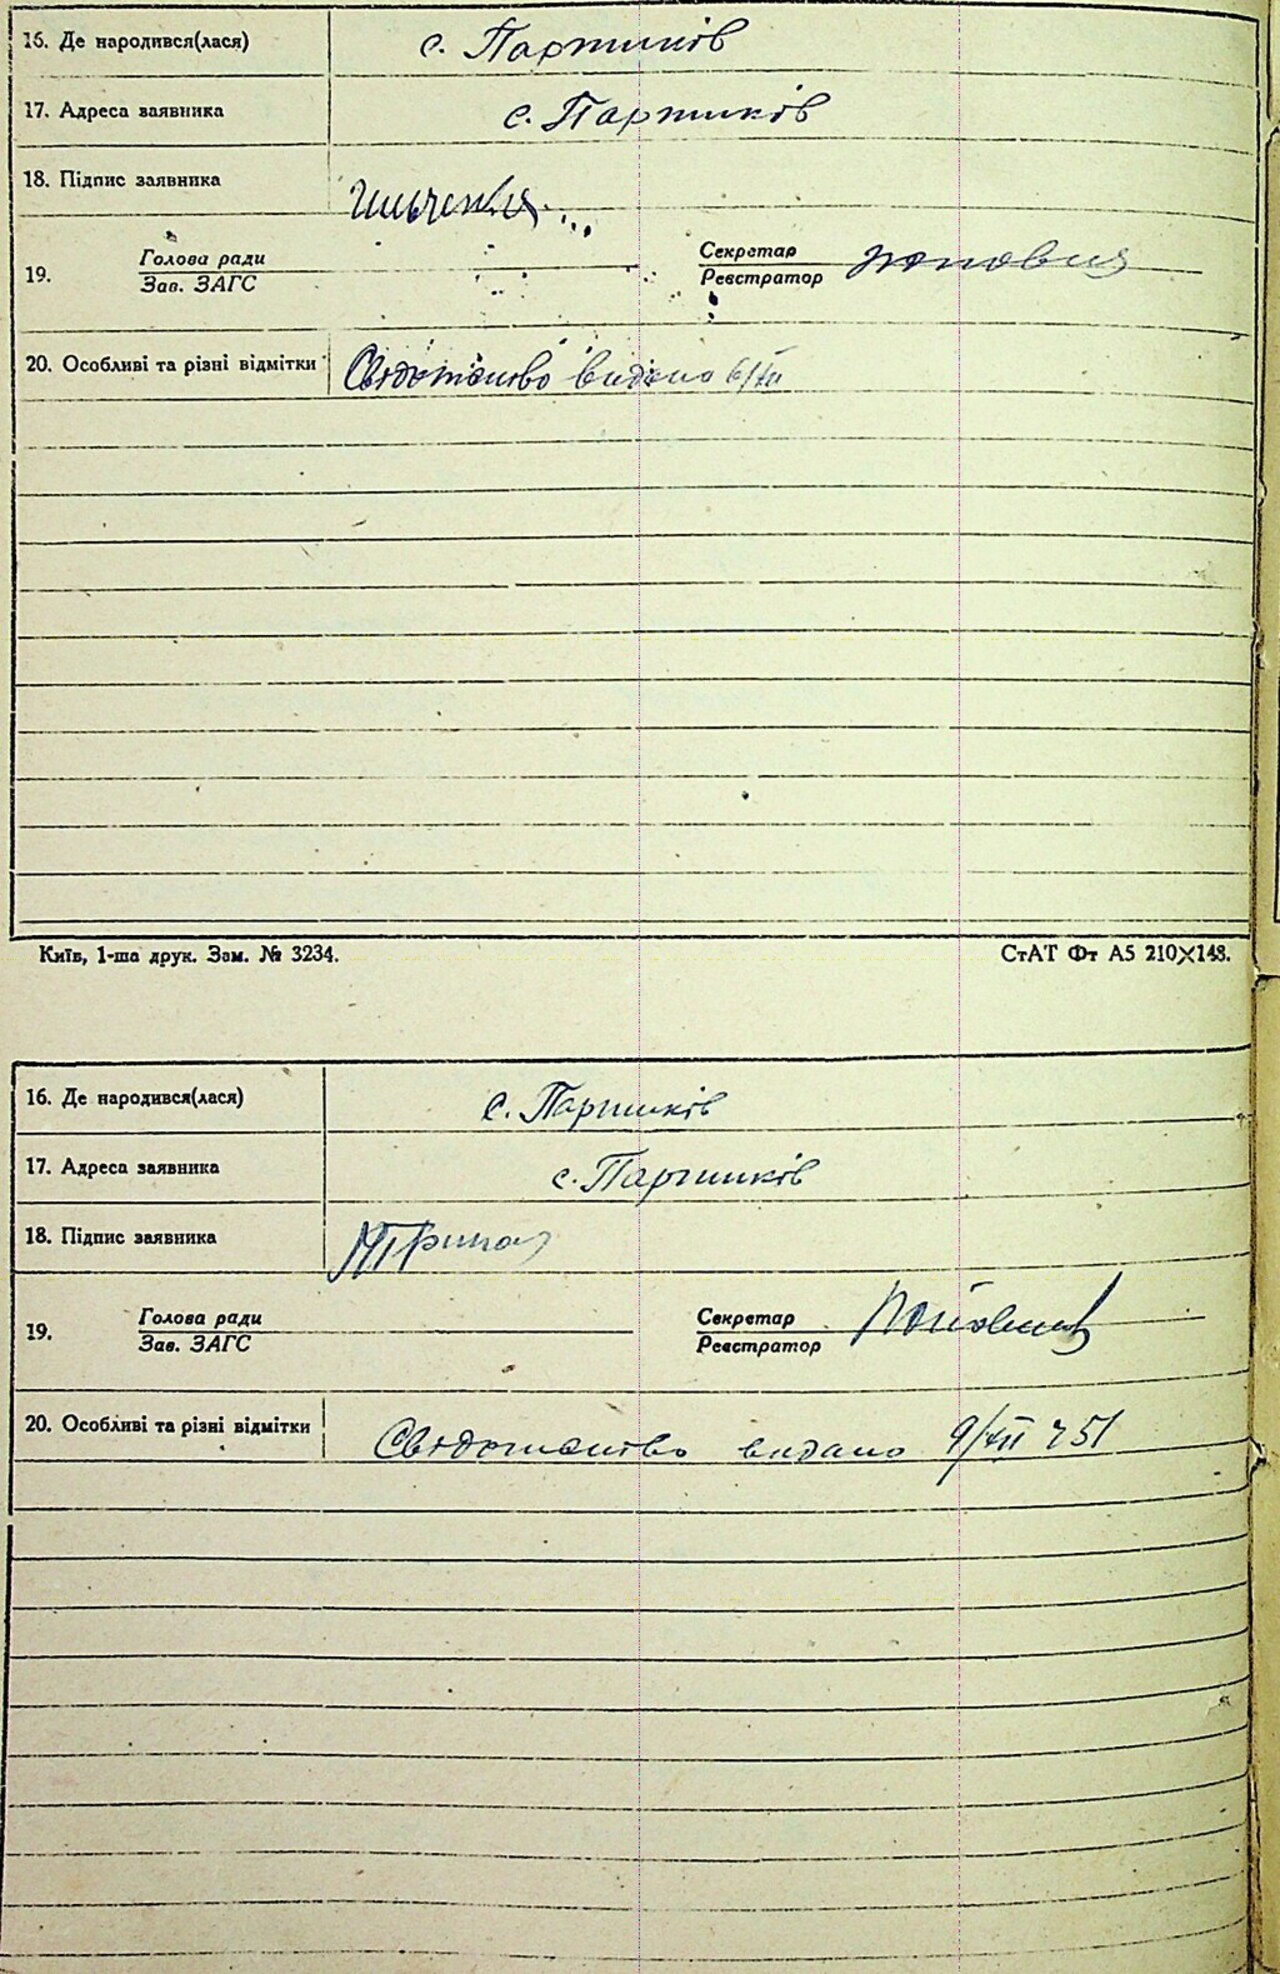 16. Де народився(лася) с. Паршиків
17. Адреса заявника с. Паршиків
18. Підпис заявника
19. Голова ради Секретар
Зав. ЗАГС Реєстратор
20. Особливі та різні відмітки Свідотство видано 6/XII
Київ, 1-ша друк. Зам. № 3234. СтАТ Фт А5 210×148.
16. Де народився(лася) с. Паршиків
17. Адреса заявника с. Паршиків
18. Підпис заявника
19. Голова ради Секретар
Зав. ЗАГС Реєстратор
20. Особливі та різні відмітки Свідотство видано 9/XII 51